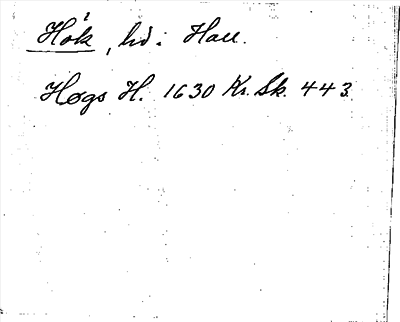 Hök, hd i Hall.
Høgs H. 1630 Kr. Sk. 443.